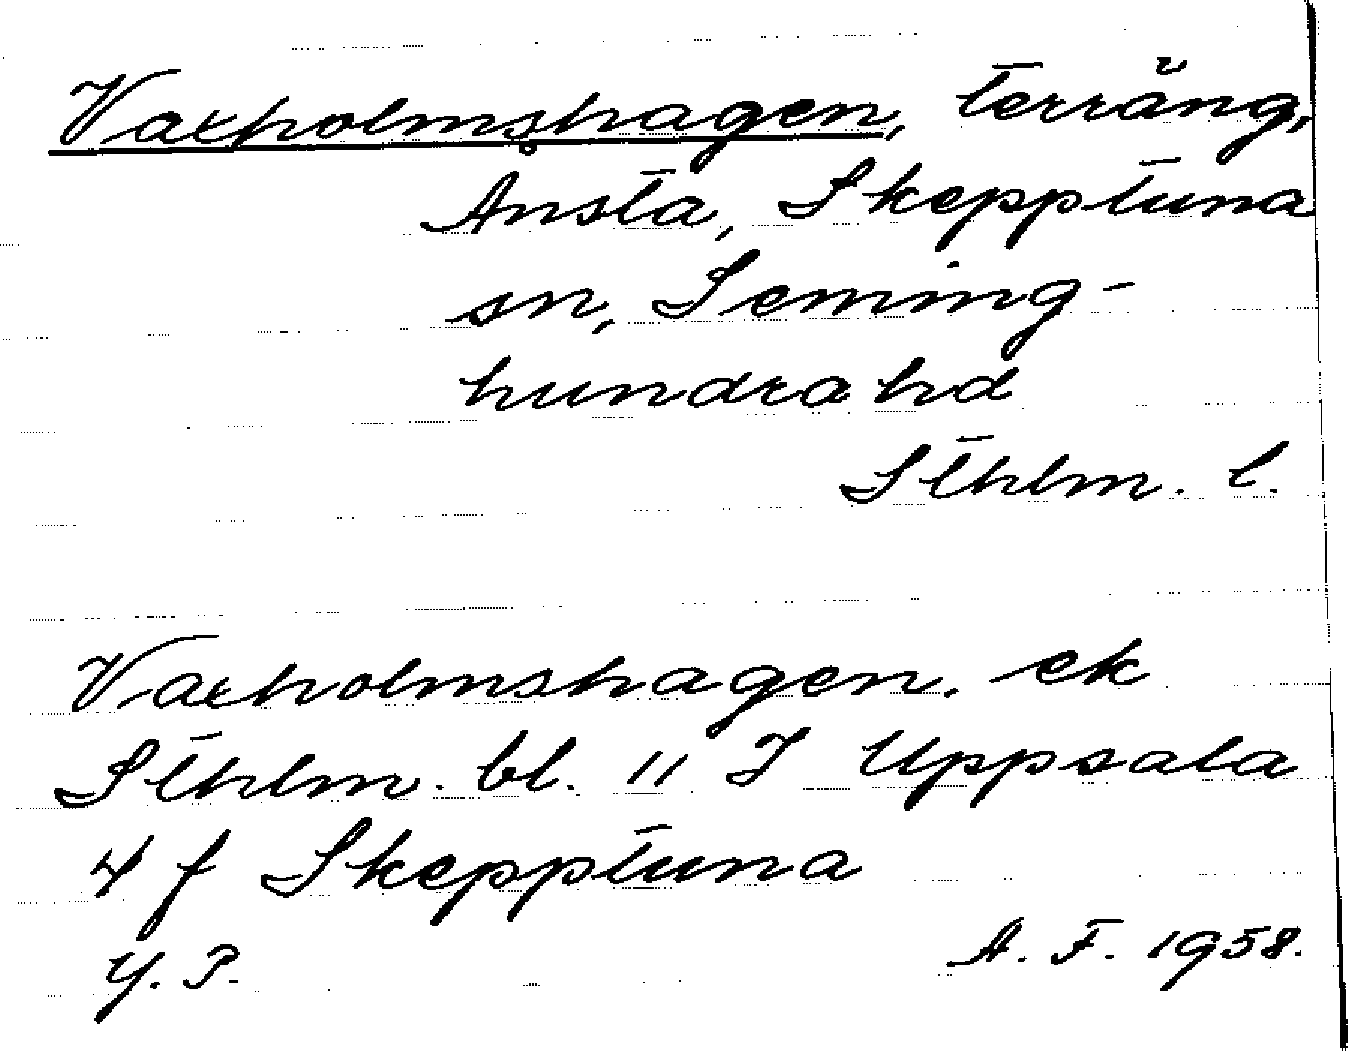 Vaxholmshagen, terräng,
Ansta, Skepptuna
sn, Seming-
hundra hd
Sthlm. l.
Vaxholmshagen. ek
Sthlm. bl. 11 I Uppsala
4 f Skepptuna
Y. P. A. F. 1958.